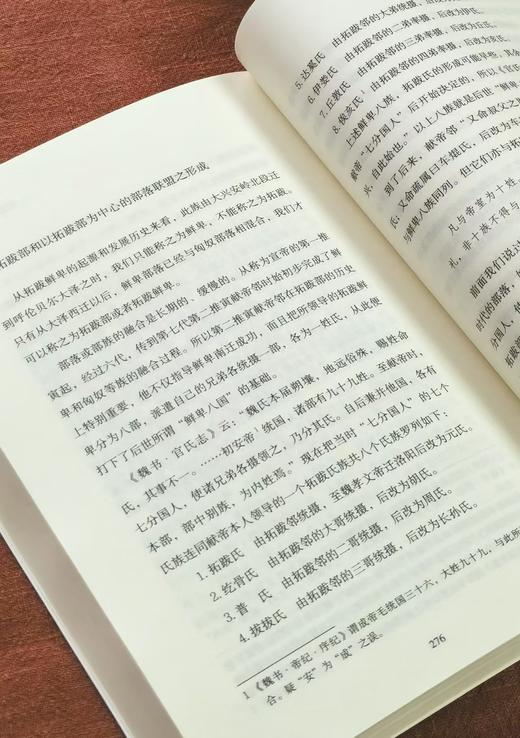 拓跋部和以拓跋部为中心的部落联盟之形成
从拓跋鲜卑的起源和发展历史来看，此族由大兴安岭北段迁
到呼伦贝尔大泽之时，我们只能称之为鲜卑，不能称之为拓跋。
只有从大泽西迁以后，鲜卑部落已经与匈奴部落相混合，我们才
可以称之为拓跋部或者拓跋鲜卑。
部落或部族的融合是长期的、缓慢的。从称为宣帝的第一推
寅起，经过六代，传到第七代第二推寅献帝邻时始初步完成了鲜
卑和匈奴等族的融合过程。所以第二推寅献帝邻在拓跋部的历史
上特别重要，他不仅指导鲜卑南迁成功，而且把所领导的拓跋鲜
卑分为八部，派遣自己的兄弟各统摄一部，各为一姓氏，从此便
打下了后世所谓“鲜卑八国”的基础。
《魏书·官氏志》云：“魏氏本居朔壤，地远俗殊，赐姓命
氏，其事不一。……初安帝¹统国，诸部有九十九姓。至献帝时，
七分国人，使诸兄弟各摄领之，乃分其氏。自后兼并他国，各有
本部，部中别族，为内姓焉。”现在把当时“七分国人”的七个
氏族连同献帝本人领导的一个拓跋氏族共八个氏族罗列如下：
1. 拓跋氏 由拓跋邻统摄，至魏孝文帝迁洛阳后改为元氏。
2. 纥骨氏 由拓跋邻的大哥统摄，后改为胡氏。
3. 普 氏 由拓跋邻的二哥统摄，后改为周氏。
4. 拔拔氏 由拓跋邻的三哥统摄，后改为长孙氏。
1 《魏书·帝纪·序纪》谓成帝毛统国三十六，大姓九十九，与此所
合。疑“安”为“成”之误。
276
5. 达奚氏 由拓跋邻的大弟统摄，后改为
6. 伊娄氏 由拓跋邻的二弟率摄，后改为伊氏。
7. 丘敦氏 由拓跋邻的三弟率摄，后改为丘氏。
8. 俟亥氏 由拓跋邻的四弟率摄，后改为亥氏。
上述鲜卑八族，拓跋氏的形成可能
献帝“七分国人”后开始决定的，所以《官氏
氏，自此始也。”以上八族就是后世“鲜卑
到了后来，献帝邻“又命叔父之
氏；又命疏属曰车焜氏，后改为车
与鲜卑八族同列。但它们亦与拓
凡与帝室为十姓，
礼，非十族不得与
前面我们说过
时代的部落，
分国人，
拓跋邻